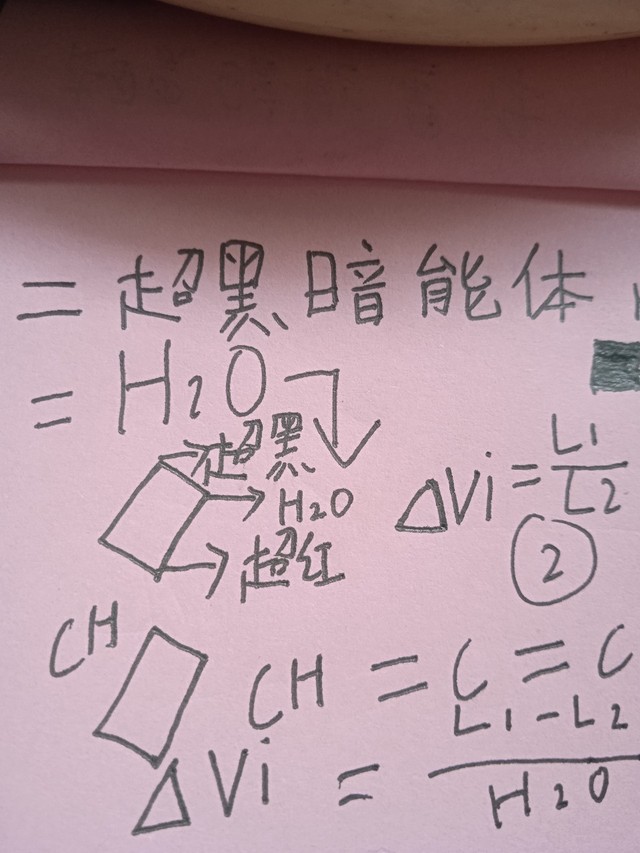 = 超黑暗能体
= H₂O
超黑
H₂O
超红
ΔVi = L1/L2
②
CH
CH = C = C
ΔVi = L1-L2/H₂O